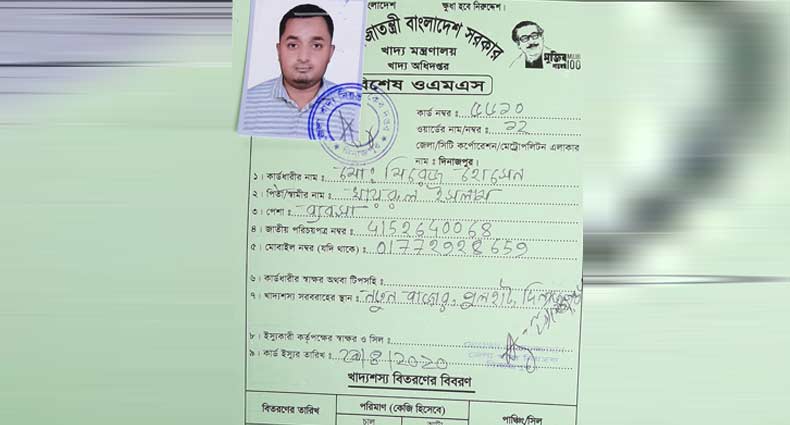 বাংলাদেশ ক্ষুধা হবে নিরুদ্দেশ।
জাতন্ত্রী বাংলাদেশ সরকার
খাদ্য মন্ত্রণালয়
খাদ্য অধিদপ্তর
মুজিব
100
বিশেষ ওএমএস
কার্ড নম্বর ঃ ৫৫২০
ওয়ার্ডের নাম/নম্বর ঃ ১২
জেলা/সিটি কর্পোরেশন/মেট্রোপলিটন এলাকার
নাম ঃ দিনাজপুর।
১। কার্ডধারীর নাম ঃ মোঃ মিরেজ হোসেন
২। পিতা/স্বামীর নাম ঃ খায়রুল ইসলাম
৩। পেশা ঃ ব্যবসা
৪। জাতীয় পরিচয়পত্র নম্বর ঃ 4152640068
৫। মোবাইল নম্বর (যদি থাকে) ঃ 01772928659
৬। কার্ডধারীর স্বাক্ষর অথবা টিপসহি ঃ
৭। খাদ্যশস্য সরবরাহের স্থান ঃ নতুন বাজার, পুলহাট, দিনাজপুর
৮। ইস্যুকারী কর্তৃপক্ষের স্বাক্ষর ও সিল ঃ
৯। কার্ড ইস্যুর তারিখ ঃ /৪/২০২০
খাদ্যশস্য বিতরণের বিবরণ
বিতরণের তারিখ পরিমাণ (কেজি হিসেবে) পাঞ্চিং/সিল
চাল আটা